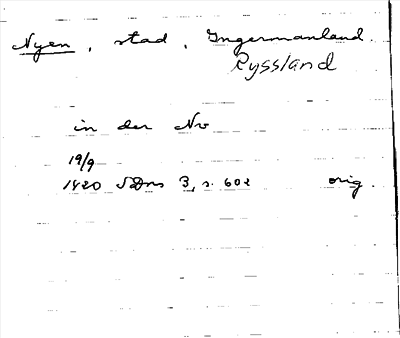 Nyen, stad, Ingermanland.
Ryssland
in der Nv
19/9
1420 SDns 3, s. 602 orig.